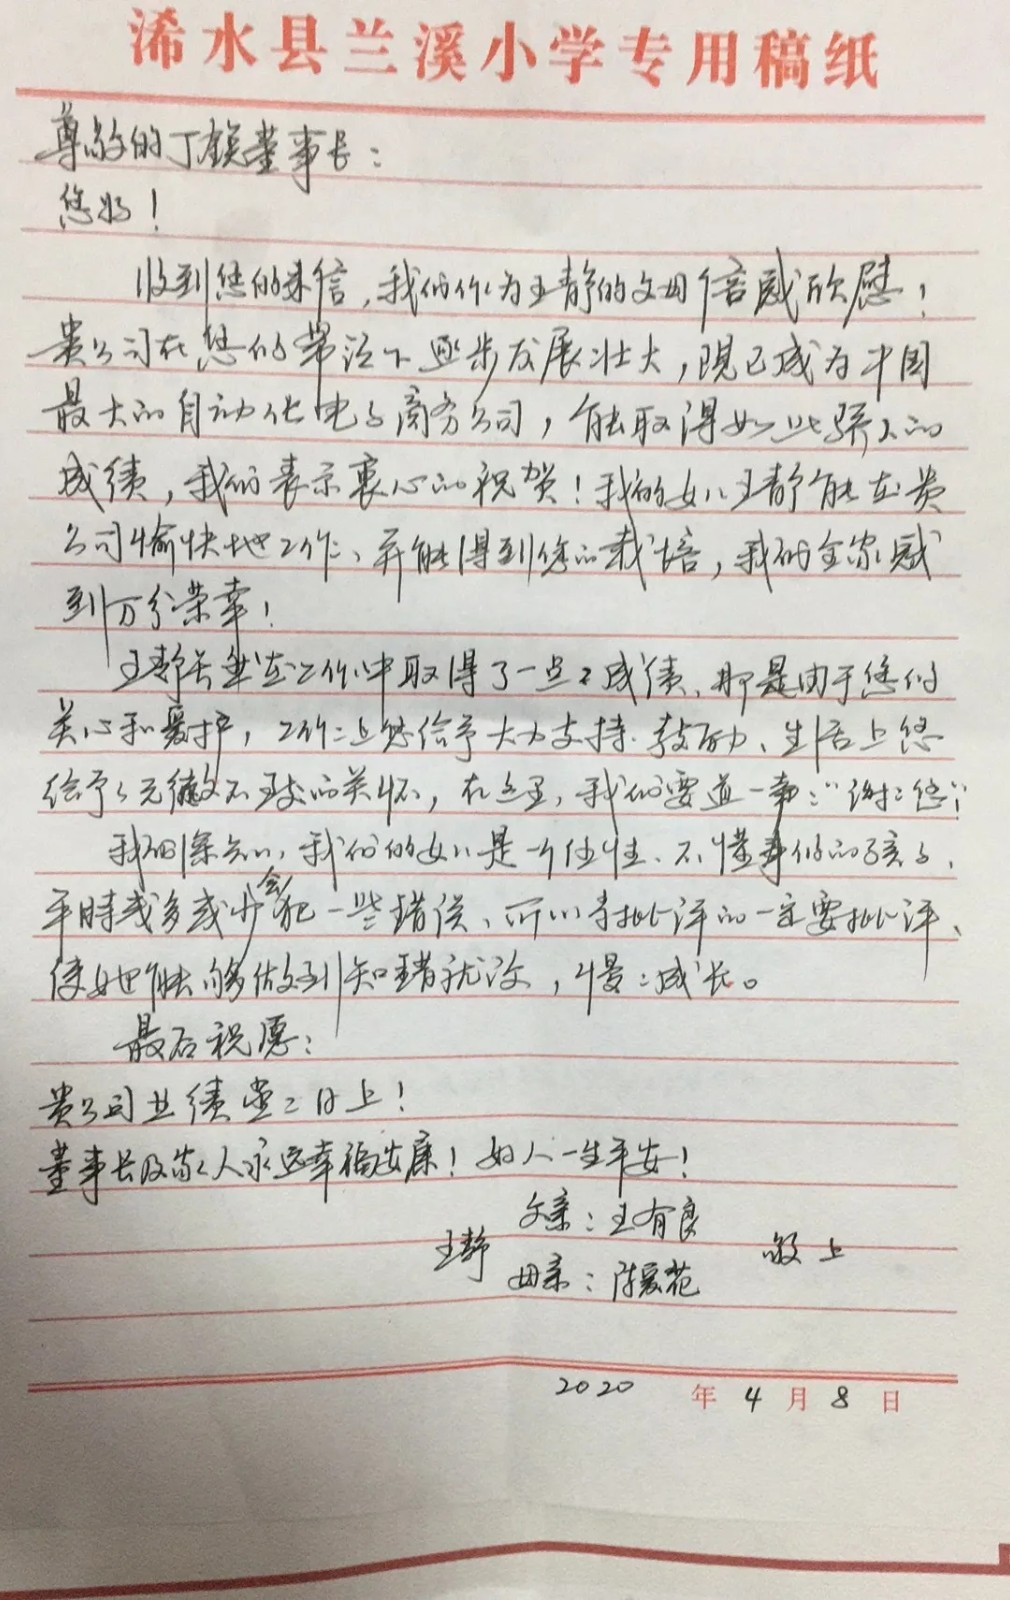 浠水县兰溪小学专用稿纸
尊敬的丁董事长：
您好！
收到您的来信，我们作为王静的父母倍感欣慰！
贵公司在您的带领下逐步发展壮大，现已成为中国
最大的自动化电子商务公司，能取得如此骄人的
成绩，我们表示衷心的祝贺！我的女儿王静能在贵
公司愉快地工作、并能得到您的栽培，我们全家感
到万分荣幸！
王静虽然在工作中取得了一点点成绩、那是由于您的
关心和爱护，工作上您给予大力支持、鼓励、生活上您
给予了无微不至的关怀，在这里，我们要道一声："谢谢您"！
我们深知，我们的女儿是一个任性、不懂事的孩子、
平时或多或少会犯一些错误、所以寻批评的一定要批评、
使她能够做到知错就改，慢慢成长。
最后祝愿：
贵公司业绩蒸蒸日上！
董事长及家人永远幸福安康！好人一生平安！
父亲：王有良
王静 敬上
母亲：陈爱花
2020年4月8日